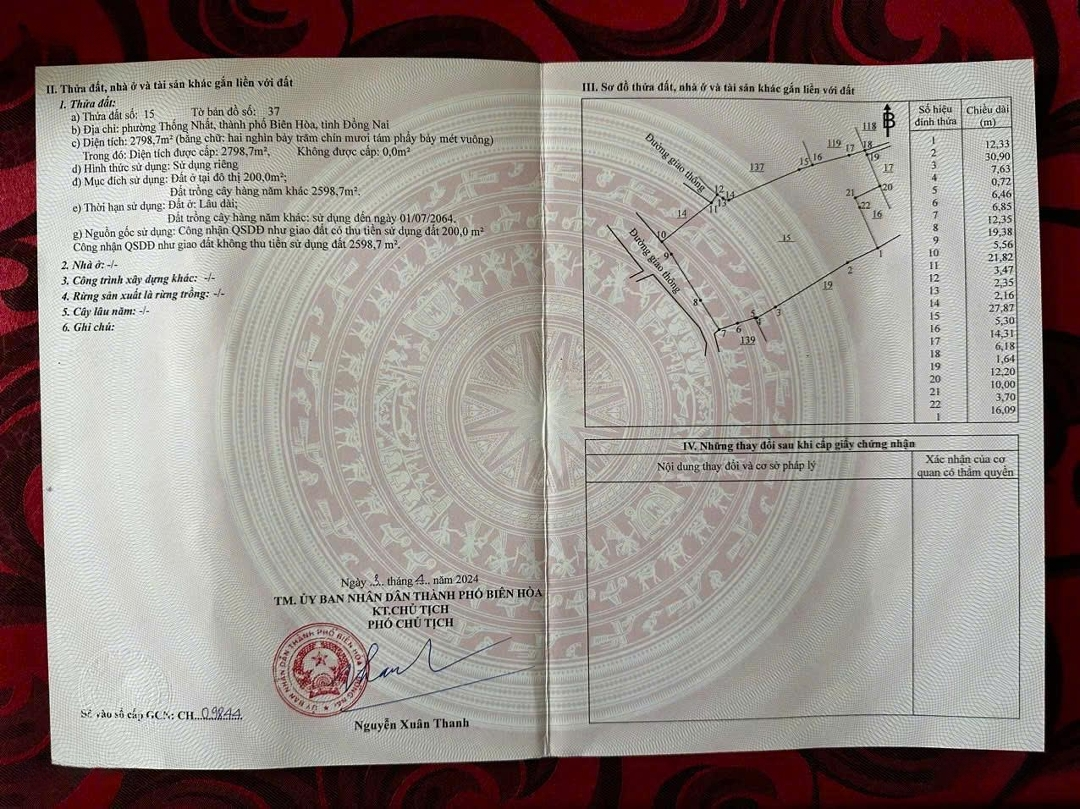 II. Thửa đất, nhà ở và tài sản khác gắn liền với đất
1. Thửa đất:
a) Thửa đất số: 15 Tờ bản đồ số: 37
b) Địa chỉ: phường Thống Nhất, thành phố Biên Hòa, tỉnh Đồng Nai
c) Diện tích: 2798,7m² (bằng chữ: hai nghìn bảy trăm chín mươi tám phẩy bảy mét vuông)
Trong đó: Diện tích được cấp: 2798,7m². Không được cấp: 0,0m²
d) Hình thức sử dụng: Sử dụng riêng
đ) Mục đích sử dụng: Đất ở tại đô thị 200,0m²;
Đất trồng cây hàng năm khác 2598,7m².
e) Thời hạn sử dụng: Đất ở: Lâu dài;
Đất trồng cây hàng năm khác: sử dụng đến ngày 01/07/2064.
g) Nguồn gốc sử dụng: Công nhận QSDĐ như giao đất có thu tiền sử dụng đất 200,0 m²
Công nhận QSDĐ như giao đất không thu tiền sử dụng đất 2598,7 m².
2. Nhà ở: -/-
3. Công trình xây dựng khác: -/-
4. Rừng sản xuất là rừng trồng: -/-
5. Cây lâu năm: -/-
6. Ghi chú:
Ngày 3. tháng 4.. năm 2024
TM. ỦY BAN NHÂN DÂN THÀNH PHỐ BIÊN HÒA
KT.CHỦ TỊCH
PHÓ CHỦ TỊCH
Nguyễn Xuân Thanh
Số vào sổ cấp GCN: CH...09844
III. Sơ đồ thửa đất, nhà ở và tài sản khác gắn liền với đất
B
118
119
137
17
16
15
14
19
139
Đường giao thông
Đường giao thông
1
2
3
4
5
6
7
8
9
10
11
12
13
14
15
16
17
18
19
20
21
22
Số hiệu đỉnh thửa Chiều dài (m)
1
12,33
2
30,90
3
7,63
4
0,72
5
6,46
6
6,85
7
12,35
8
19,38
9
5,56
10
21,82
11
3,47
12
2,35
13
2,16
14
27,87
15
5,30
16
14,31
17
6,18
18
1,64
19
12,20
20
10,00
21
3,70
22
16,09
1
IV. Những thay đổi sau khi cấp giấy chứng nhận
Nội dung thay đổi và cơ sở pháp lý
Xác nhận của cơ
quan có thẩm quyền